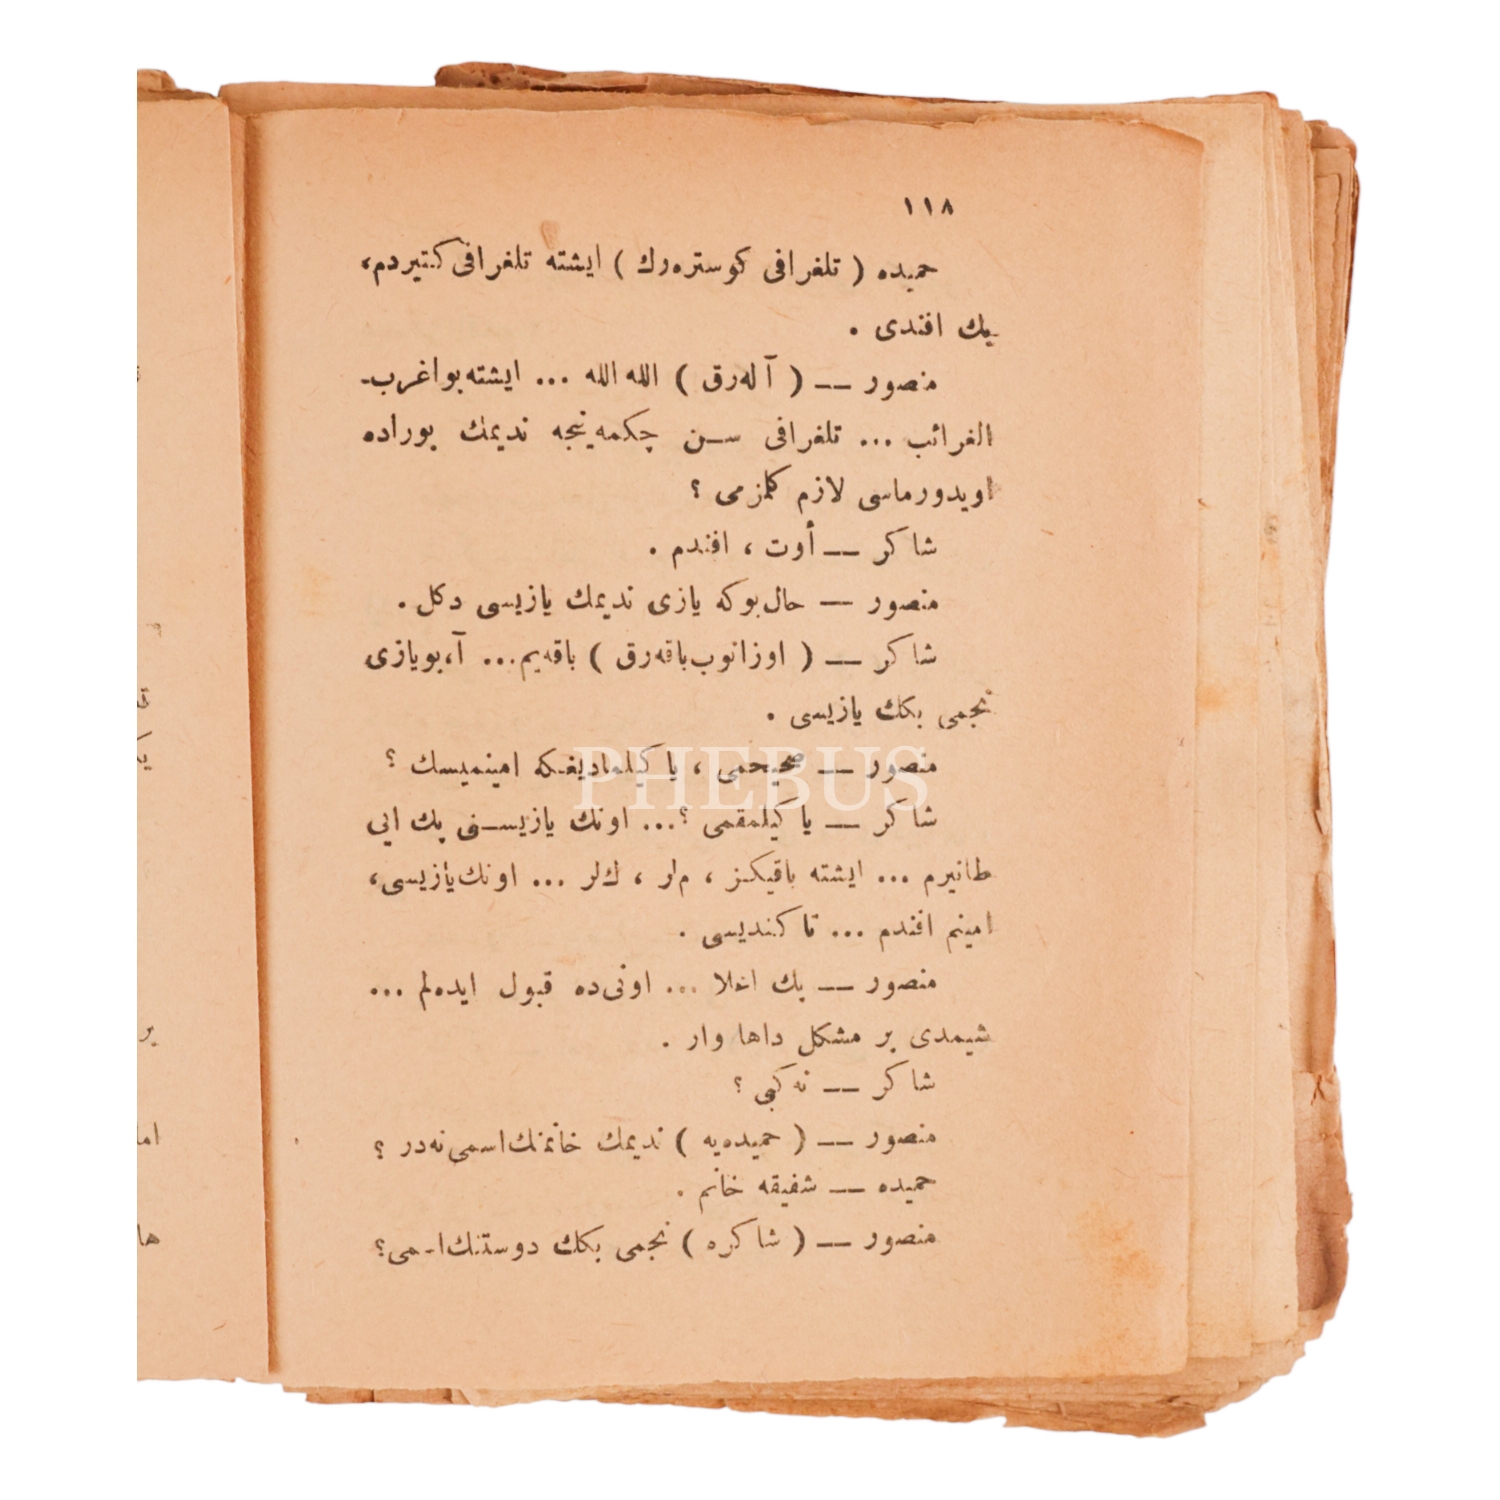 ١١٨
حمیده ( تلغرافی کوستره‌رك ) ایشته تلغرافی کتیردم،
بك افندی .
منصور — ( آله‌رق ) الله الله ... ایشته بو اغرب-
الغرائب ... تلغرافی سن چکمه‌ینجه ندیمك بوراده
اویدورماسی لازم کلمزمی ؟
شاکر — أوت ، افندم .
منصور — حال بوکه یازی ندیمك یازیسی دکل .
شاکر — ( اوزانوب باقه‌رق ) باقه‌یم... آ، بو یازی
نجمی بكك یازیسی .
منصور — صحیحمی ، یاکیلمادیغکه امینمیسك ؟
شاکر — یاکیلمقمی ؟... اونك یازیسنی پك ایی
طانیرم ... ایشته باقیکز ، م‌لر ، ك‌لر ... اونك یازیسی،
امینم افندم ... تا کندیسی .
منصور — پك اعلا ... اونی‌ده قبول ایده‌لم ...
شیمدی بر مشکل داها وار .
شاکر — نه کبی ؟
منصور — ( حمیده‌یه ) ندیمك خانمنك اسمی نه‌در ؟
حمیده — شفیقه خانم .
منصور — ( شاکره ) نجمی بكك دوستنك اسمی؟
PHEBUS